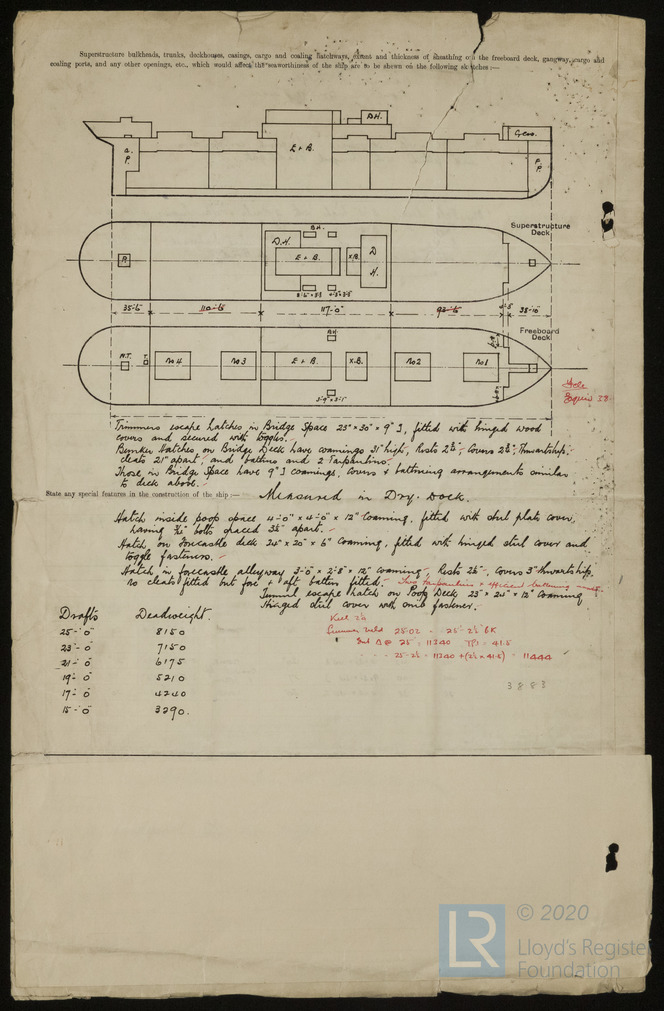 Superstructure bulkheads, trunks, deckhouses, casings, cargo and coaling hatchways, extent and thickness of sheathing on the freeboard deck, gangway, cargo and
coaling ports, and any other openings, etc., which would affect the seaworthiness of the ship are to be shewn on the following sketches:—
D.H.
Crew.
A.P.
E + B.
F.P.
Superstructure
Deck
B.H.
D.H.
E + B.
X.B.
D
H.
35'-5
110-5
117'-0"
93-5
38-10
Freeboard
Deck
B.H.
N.T.
T.
No 4
No 3
E + B.
X.B.
No 2
No 1
3'-9" × 3'-5"
Trimmers escape hatches in Bridge Space 23" × 30" × 9" I, fitted with hinged wood
covers and secured with toggles.
Bunker Hatches on Bridge Deck have coamings 31" high, Rests 2½", Covers 2½", Thwartship.
cleats 21" apart, and battens and 2 Tarpaulins.
Those in Bridge Space have 9" I coamings, covers & battening arrangements similar
to deck above.
State any special features in the construction of the ship:—
Measured in Dry Dock.
Hatch inside poop space 4'-0" × 4'-0" × 12" Coaming, fitted with steel plate cover,
having bolts spaced 3½" apart.
Hatch on Forecastle deck 24" × 20" × 6" Coaming, fitted with hinged steel cover and
toggle fasteners.
Hatch in forecastle alleyway 3'-0" × 2'-8" × 12" coaming, Rests 2½", Covers 3" thwartship,
no cleats fitted but fore & aft batten fitted. Two Tarpaulins & efficient battening
Tunnel escape hatch on Poop Deck 23" × 24" × 12" Coaming
Hinged steel cover with one fastener.
Drafts Deadweight.
25'-0" 8150
23'-0" 7150
21'-0" 6175
19'-0" 5210
17'-0" 4240
15'-0" 3290.
Keel 2½
Summer 25.02 - 25'-2½" BK
@ 25' = 11240 TPI = 41.5
25'-2½ = 11240 + (2½ × 41.5) = 11444
3883
LR
© 2020
Lloyd's Register
Foundation